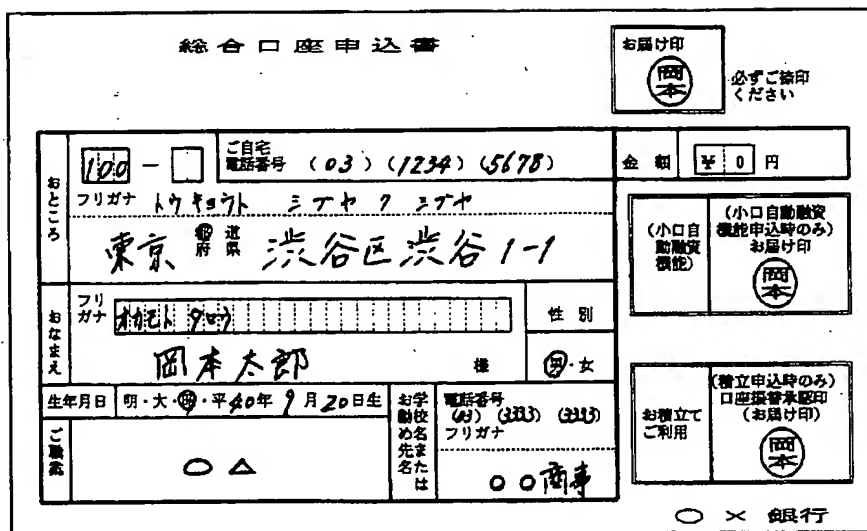 総合口座申込書
お届け印
岡本
必ずご捺印
ください
おところ
100 -
ご自宅
電話番号 (03) (1234) (5678)
金額 ¥ 0 円
フリガナ トウキョウト シブヤ ク シブヤ
東京 都道府県 渋谷区渋谷1-1
(小口自動融資機能)
(小口自動融資
機能申込時のみ)
お届け印
岡本
おなまえ
フリガナ オカモト タロウ
性別
岡本太郎 様
男・女
生年月日 明・大・昭・平40年9月20日生
学校名または
お勤め先名
電話番号
(03) (3333) (3333)
フリガナ
○○商事
ご職業
○△
お積立て
ご利用
(積立申込時のみ)
口座振替承認印
(お届け印)
岡本
○×銀行